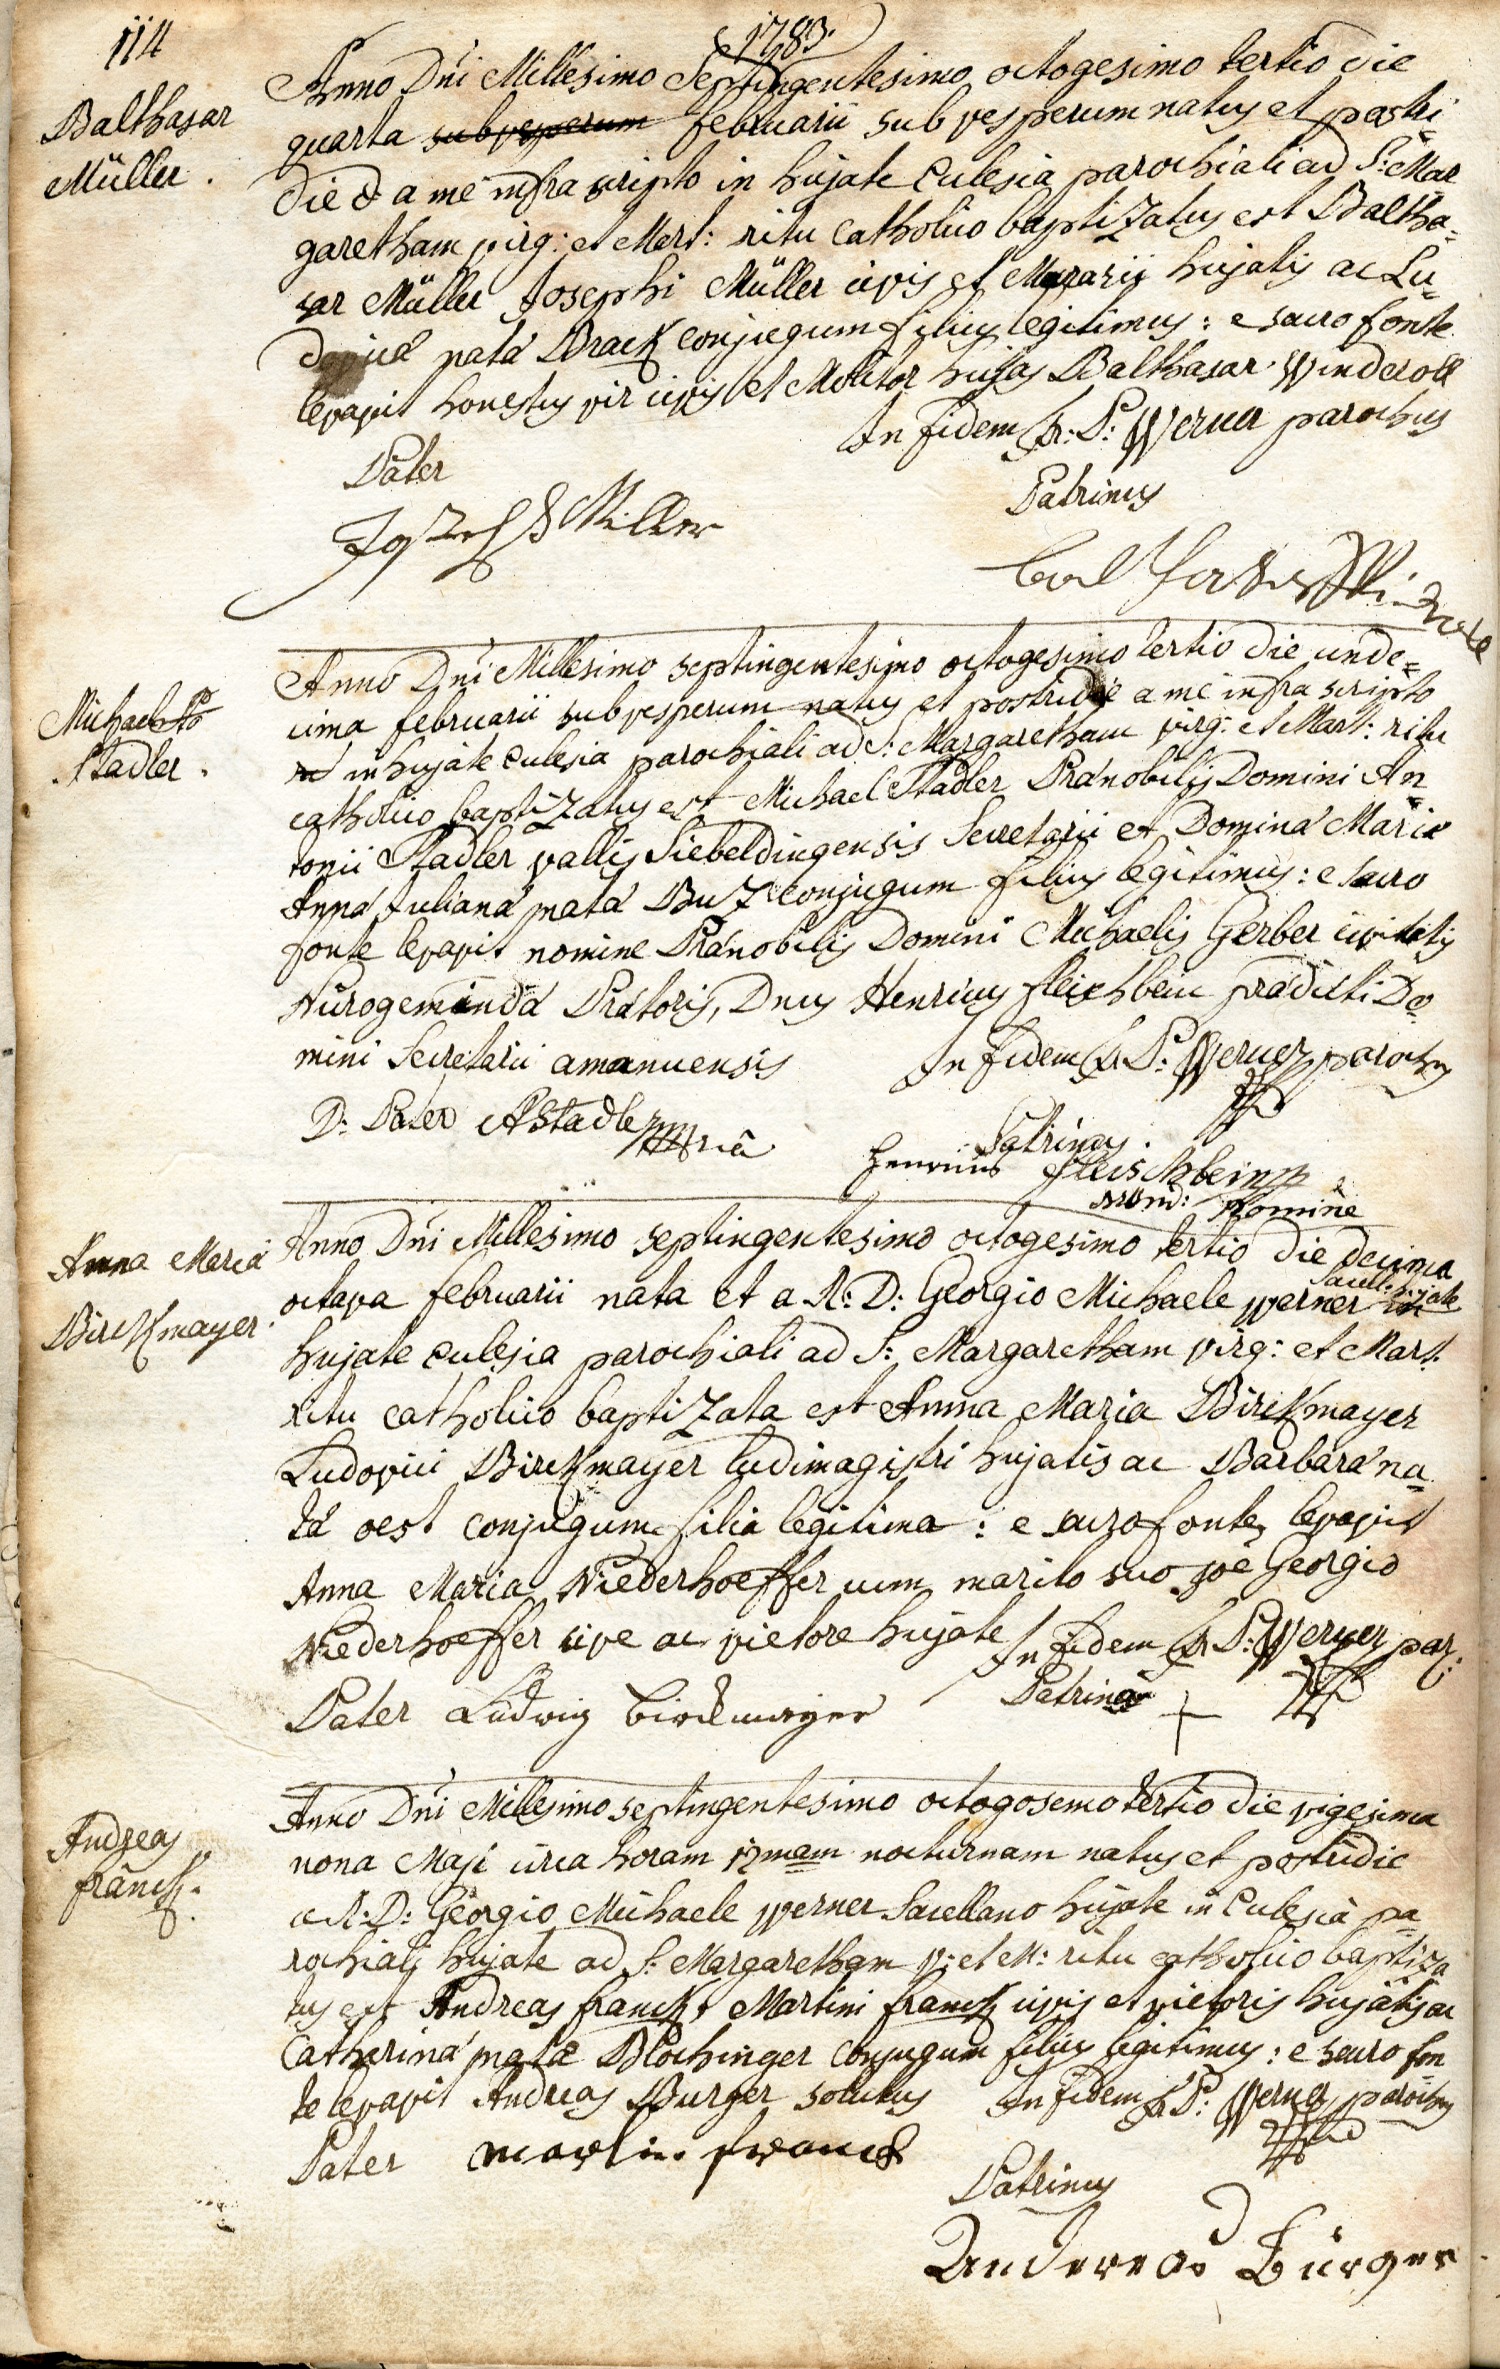 114
1783.
Balthasar
Müller.
Anno Dñi Millesimo Septingentesimo octogesimo tertio die
quarta sub vesperum februarii sub vesperum natus et postri=
die a me infra scripto in hujate Eclesia parochiali ad S: Mar
garetham virg: et Mart: ritu catholico baptizatus est Baltha=
sar Müller Josephi Müller civis et Murarii hujatis ac Lu=
nata Brack conjugum filius legitimus: e sacro fonte
levavit honestus vir civis et Molitor hujas Balthasar Winderoll
In fidem Fr: P: Werner parochus
Pater
Patrinus
Joseph Miller
Michael
Stadler.
Anno Dñi Millesimo septingentesimo octogesimo tertio die unde=
cima februarii sub vesperum natus et postridie a me infra scripto
in hujate Eclesia parochiali ad S: Margaretham virg: et Mart: ritu
catholico baptizatus est Michael Stadler Prænobilis Domini An
tonii Stadler vallis Siebeldingensis Secretarii et Domina Mariæ
Anna Juliana nata Buz conjugum filius legitimus: e sacro
fonte levavit nomine Prænobilis Domini Michaelis Gerber civitatis
Prætoris, Dnus Henricus fleischbein prædicti Do=
mini Secretarii amanuensis
In fidem Fr. P: Werner parochus
D: Pater AStadler
Patrinus.
Henricus fleischbein
nom: Nomine
Anna Maria
Birckmayer.
Anno Dñi Millesimo septingentesimo octogesimo tertio die decima
octava februarii nata et a R: D: Georgio Michaele Werner Sacell: hujate
hujate Eclesia parochiali ad S: Margaretham virg: et Mart.
ritu catholico baptizata est Anna Maria Birckmayer
Ludovici Birckmayer ludimagistri hujatis ac Barbara na=
ta oest conjugum filia legitima: e sacro fonte levavit
Anna Maria Niederhoeffer cum marito suo Joe Georgio
Niederhoeffer cive ac vietore hujate
In fidem Fr P: Werner par:
Pater Ludwig birckmayer
Patrina +
Andreas
franck.
Anno Dñi Millesimo septingentesimo octogosemo tertio die vigesima
nona Maji circa horam 12mam nocturnam natus et postridie
a R: D: Georgio Michaele Werner Sacellano hujate in Eclesia pa=
rochiali hujate ad S: Margaretham V: et M: ritu catholico baptiza
tus est Andreas franck, Martini franck civis et vietoris hujatis ac
Catharina nata Blochinger conjugum filius legitimus: e sacro fon
te levavit Andreas Burger solutus
In fidem Fr P: Werner parochus
Pater martin franck
Patrinus
Andereas Bürger